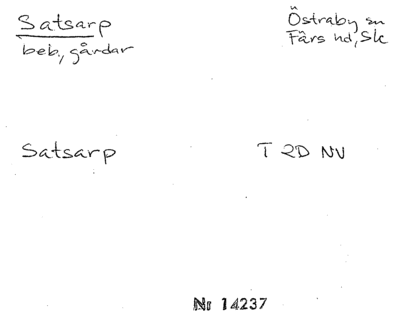 Satsarp
beb., gårdar
Östraby sn
Färs hd, Sk
Satsarp
T 2D NV
Nr 14237